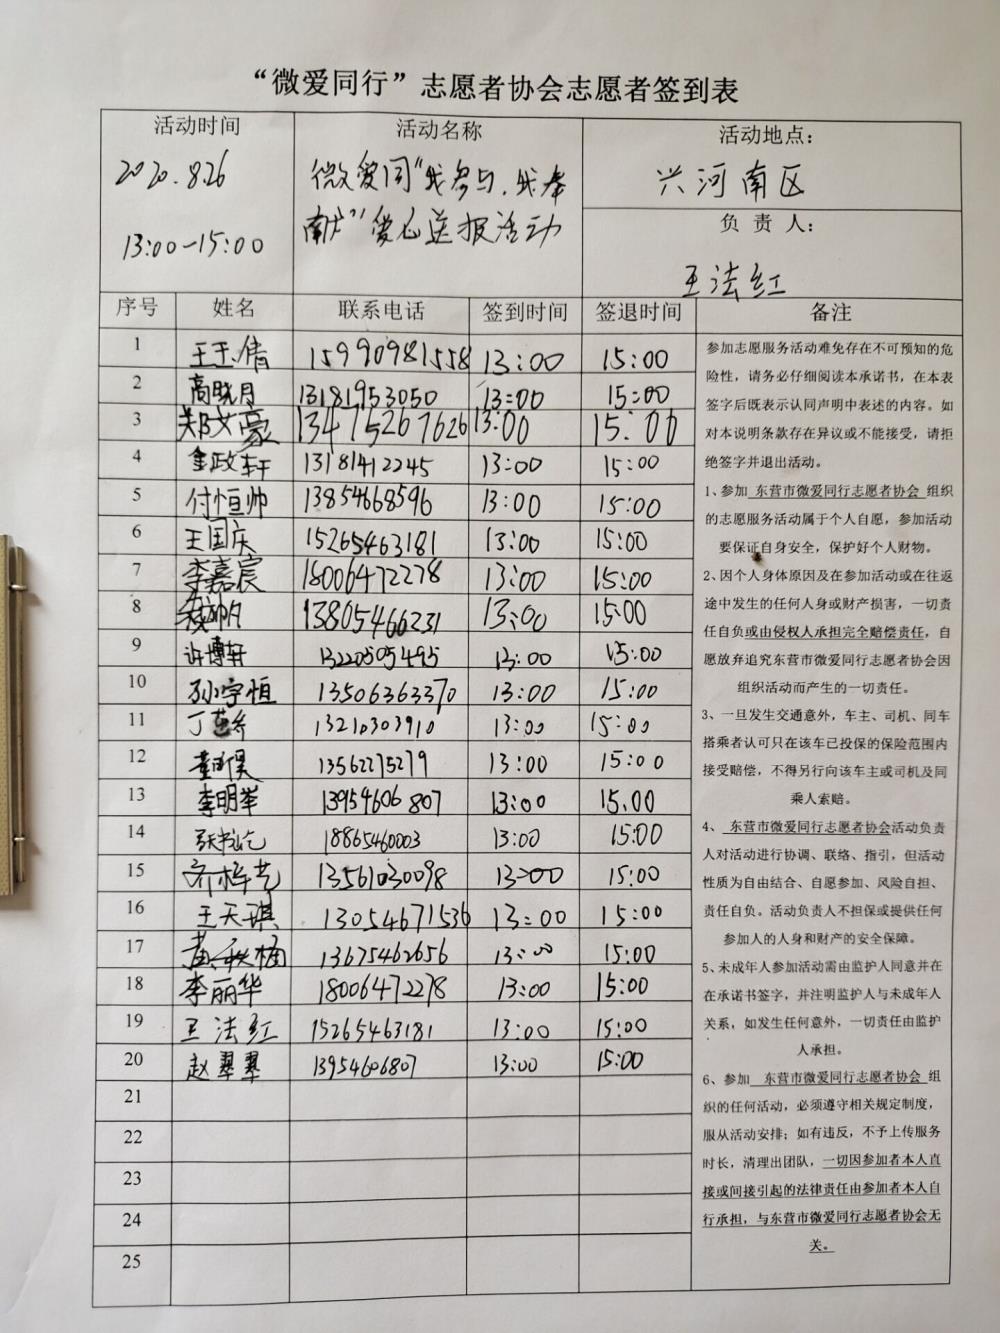 “微爱同行”志愿者协会志愿者签到表
活动时间
2020.8.26
13:00-15:00
活动名称
微爱同“我参与,我奉
献”爱心送报活动
活动地点:
兴河南区
负责人:
王法红
序号 姓名 联系电话 签到时间 签退时间 备注
1 王玉倩 15990981558 13:00 15:00
2 高晓月 13181953050 13:00 15:00
3 郑文豪 13415267626 13:00 15:00
4 政轩 13181412245 13:00 15:00
5 付恒帅 13854668596 13:00 15:00
6 王国庆 15265463181 13:00 15:00
7 李嘉宸 18006472278 13:00 15:00
8 13805466231 13:00 15:00
9 许博轩 13220505495 13:00 15:00
10 孙宇恒 13506363370 13:00 15:00
11 丁 13210303910 13:00 15:00
12 13562275279 13:00 15:00
13 李明举 13954606807 13:00 15:00
14 张书 18865460003 13:00 15:00
15 齐梓艺 13561030098 13:00 15:00
16 王天琪 13054671536 13:00 15:00
17 黄秋楠 13675462656 13:00 15:00
18 李丽华 18006472278 13:00 15:00
19 王法红 15265463181 13:00 15:00
20 赵翠翠 13954606807 13:00 15:00
21
22
23
24
25
参加志愿服务活动难免存在不可预知的危
险性,请务必仔细阅读本承诺书,在本表
签字后既表示认同声明中表述的内容。如
对本说明条款存在异议或不能接受,请拒
绝签字并退出活动。
1、参加 东营市微爱同行志愿者协会 组织
的志愿服务活动属于个人自愿,参加活动
要保证自身安全,保护好个人财物。
2、因个人身体原因及在参加活动或在往返
途中发生的任何人身或财产损害,一切责
任自负或由侵权人承担完全赔偿责任,自
愿放弃追究东营市微爱同行志愿者协会因
组织活动而产生的一切责任。
3、一旦发生交通意外,车主、司机、同车
搭乘者认可只在该车已投保的保险范围内
接受赔偿,不得另行向该车主或司机及同
乘人索赔。
4、 东营市微爱同行志愿者协会活动负责
人对活动进行协调、联络、指引,但活动
性质为自由结合、自愿参加、风险自担、
责任自负。活动负责人不担保或提供任何
参加人的人身和财产的安全保障。
5、未成年人参加活动需由监护人同意并在
在承诺书签字,并注明监护人与未成年人
关系,如发生任何意外,一切责任由监护
人承担。
6、参加 东营市微爱同行志愿者协会 组
织的任何活动,必须遵守相关规定制度,
服从活动安排;如有违反,不予上传服务
时长,清理出团队,一切因参加者本人直
接或间接引起的法律责任由参加者本人自
行承担,与东营市微爱同行志愿者协会无
关。